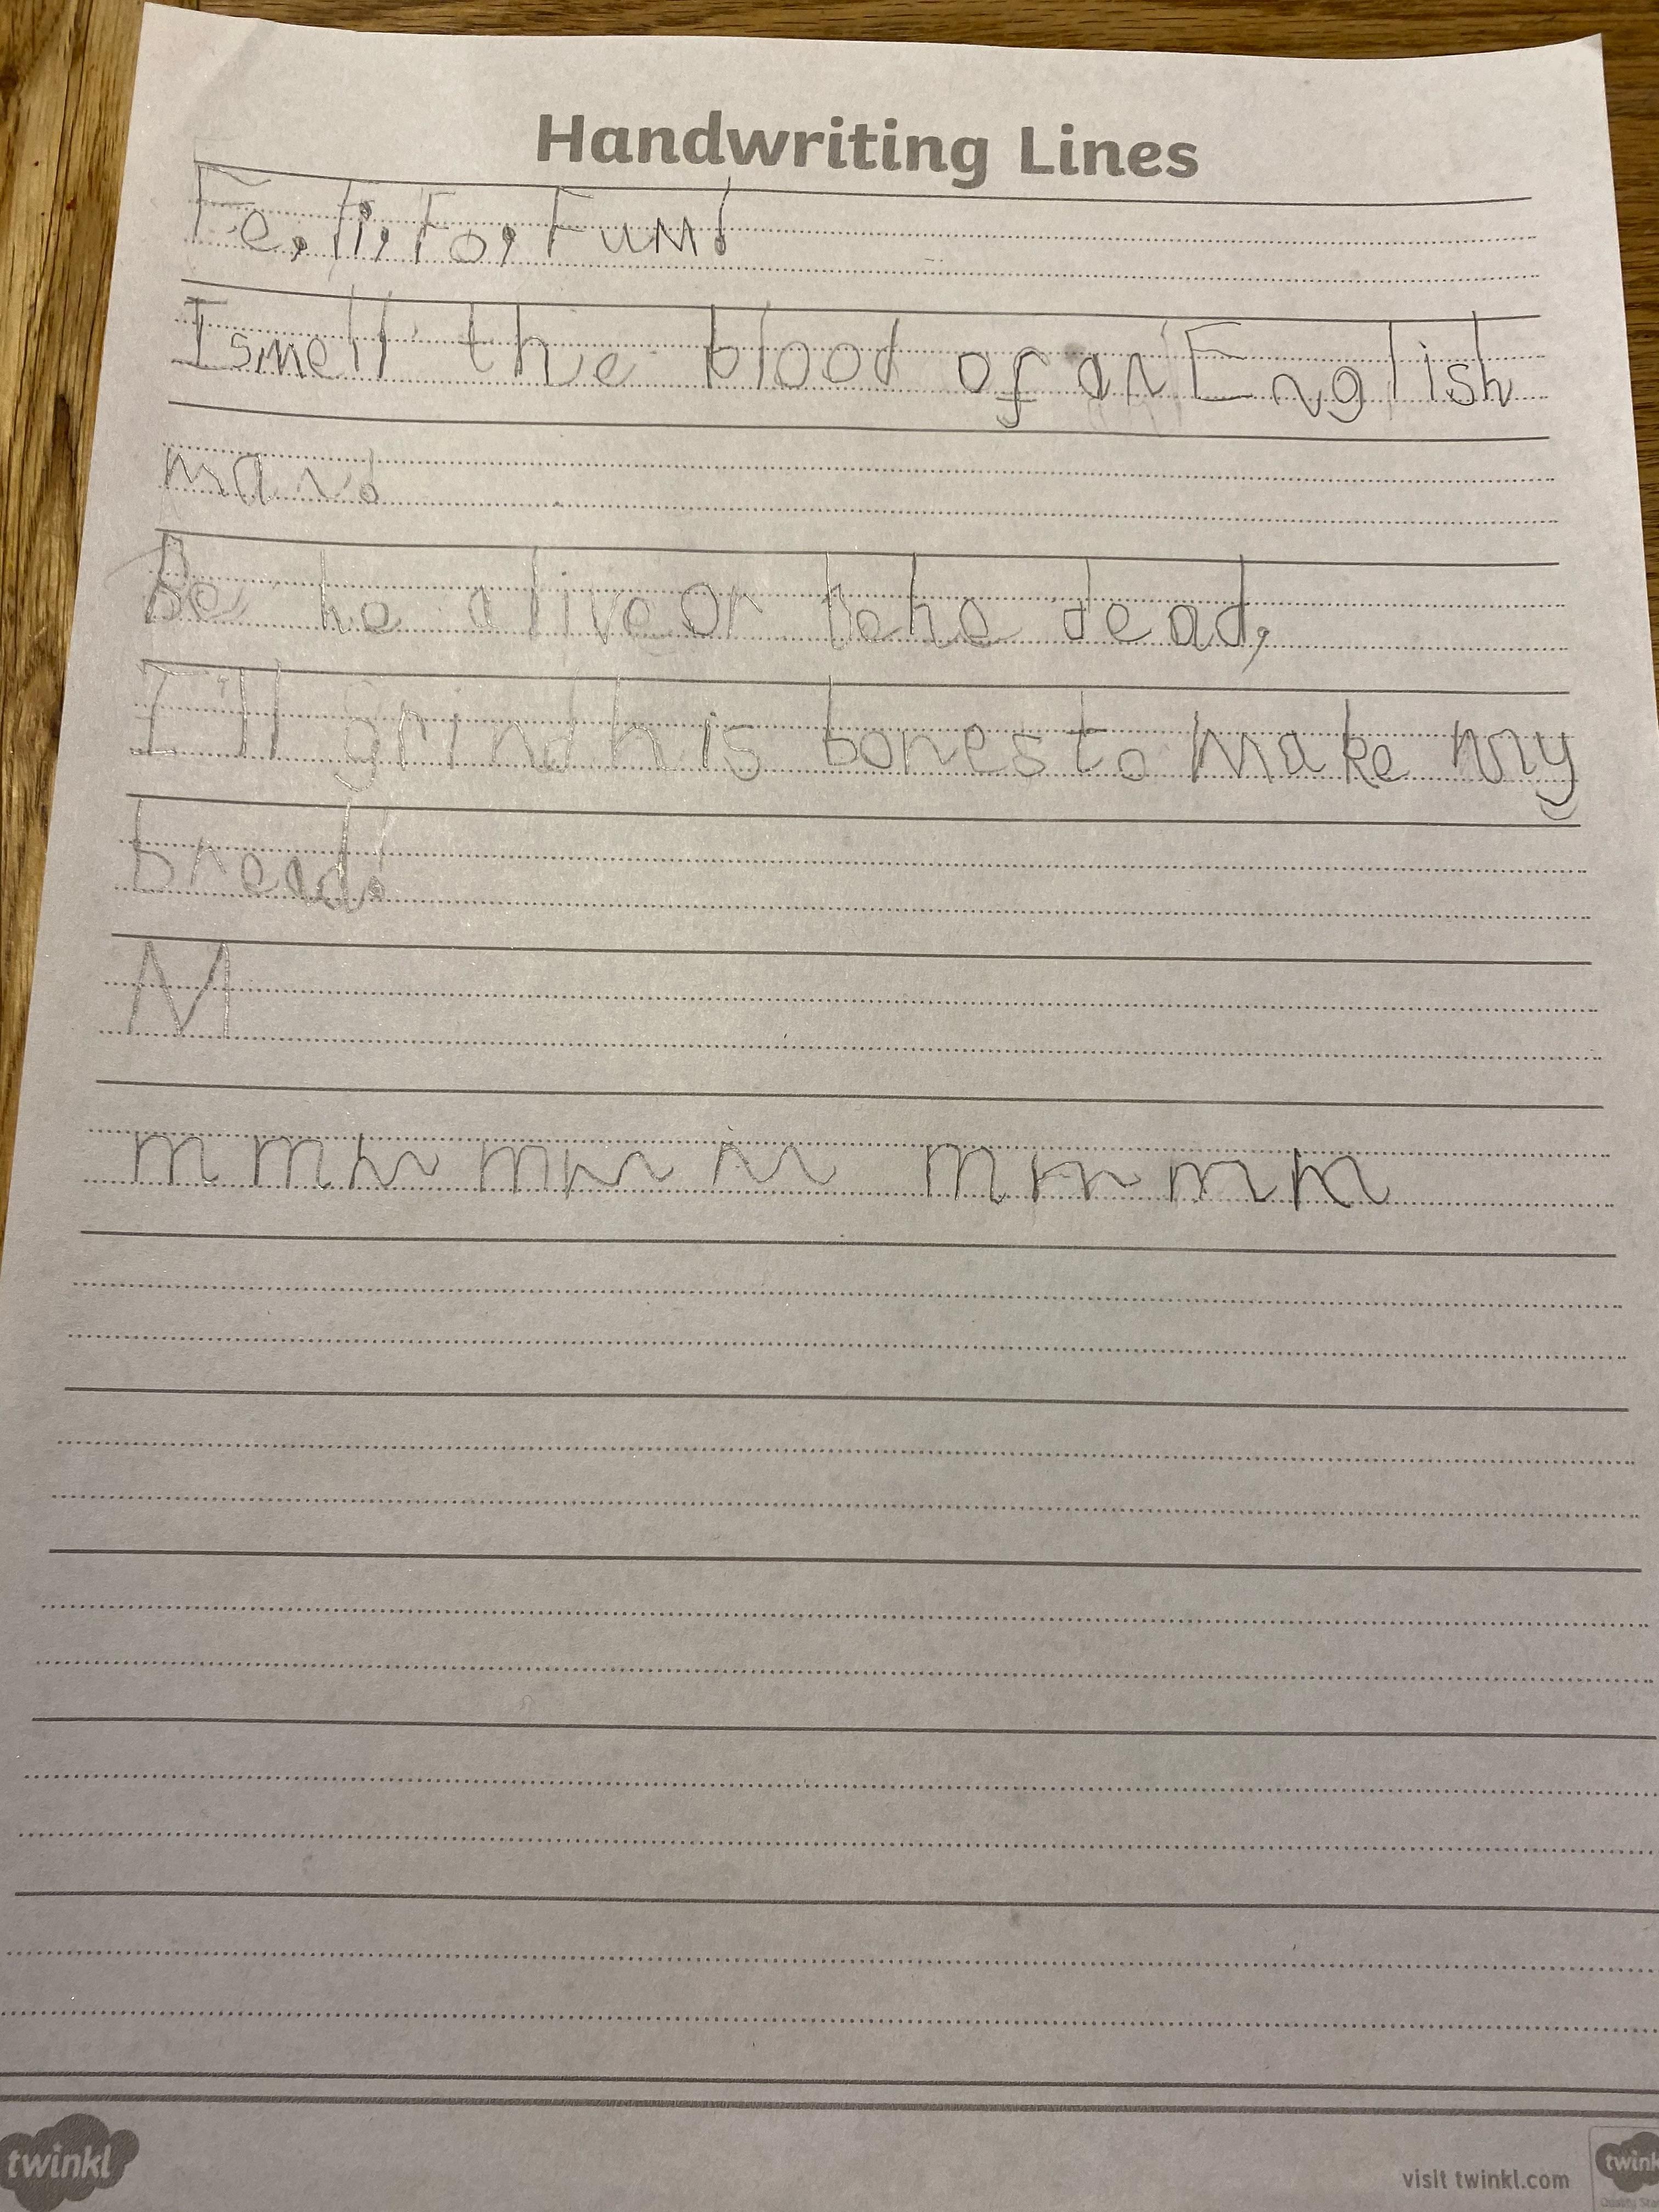 Handwriting Lines
Fe, Fi, Fo, Fum!
I smell the blood of an English
man!
Be he alive or be he dead,
I'll grind his bones to make my
bread!
M
m m m m m m m m m m
twinkl
visit twinkl.com
twinkl